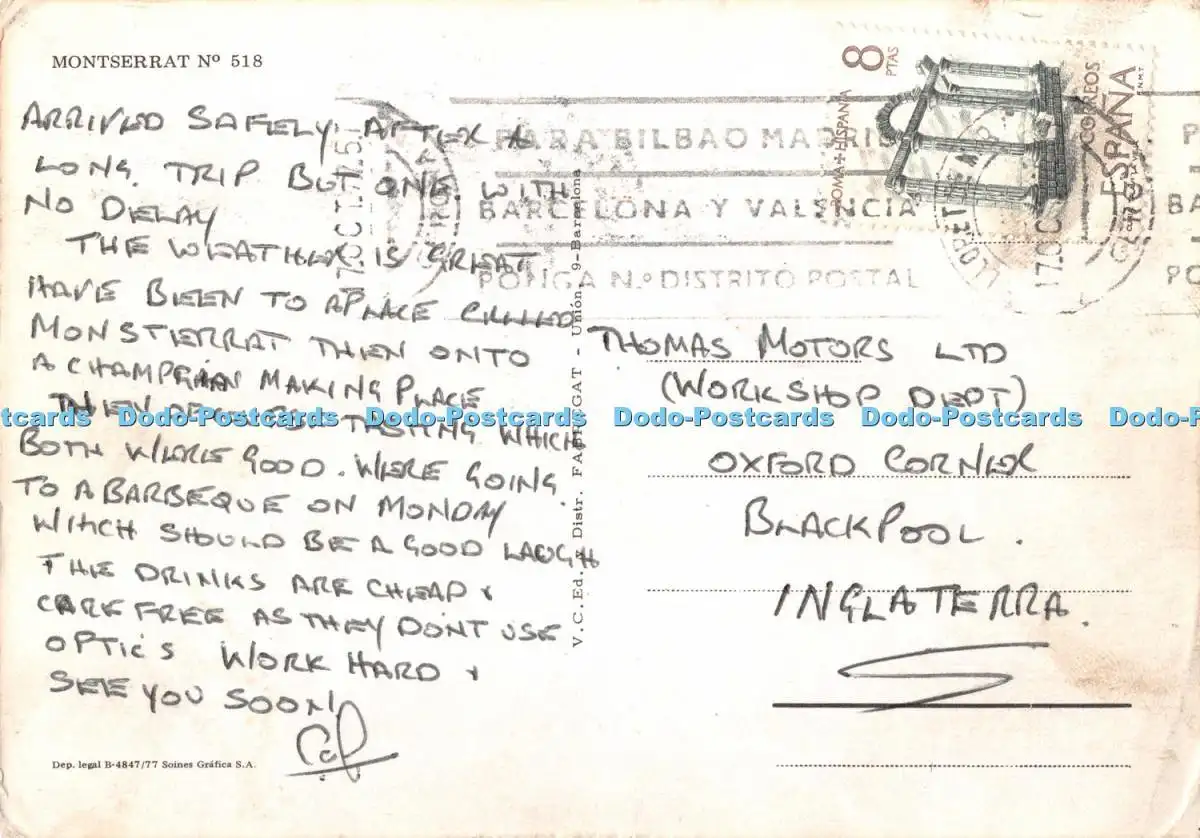 MONTSERRAT Nº 518
ARRIVED SAFELY AFTER A
LONG TRIP BUT ONE WITH
NO DELAY
THE WEATHER IS GREAT
HAVE BEEN TO A PLACE CALLED
MONSTERRAT THEN ONTO
A CHAMPAIAN MAKING PLACE
THEY TASTING WHICH
BOTH WERE GOOD. WERE GOING
TO A BARBEQUE ON MONDAY
WITCH SHOULD BE A GOOD LAUGH
THE DRINKS ARE CHEAP &
CARE FREE AS THEY DONT USE
OPTIC'S WORK HARD &
SEE YOU SOON!
Dep. legal B-4847/77 Soines Gráfica S.A.
V.C. Ed. Distr. GAT - Unión, 9-Barcelona
PARA BILBAO MADRID
BARCELONA Y VALENCIA
PONGA N.º DISTRITO POSTAL
8 PTAS
ROMA + HISPANIA
CORREOS
ESPAÑA
F.N.M.T.
THOMAS MOTORS LTD
(WORKSHOP DEPT)
OXFORD CORNER
BLACKPOOL.
INGLATERRA.
Dodo-Postcards Dodo-Postcards Dodo-Postcards Dodo-Postcards